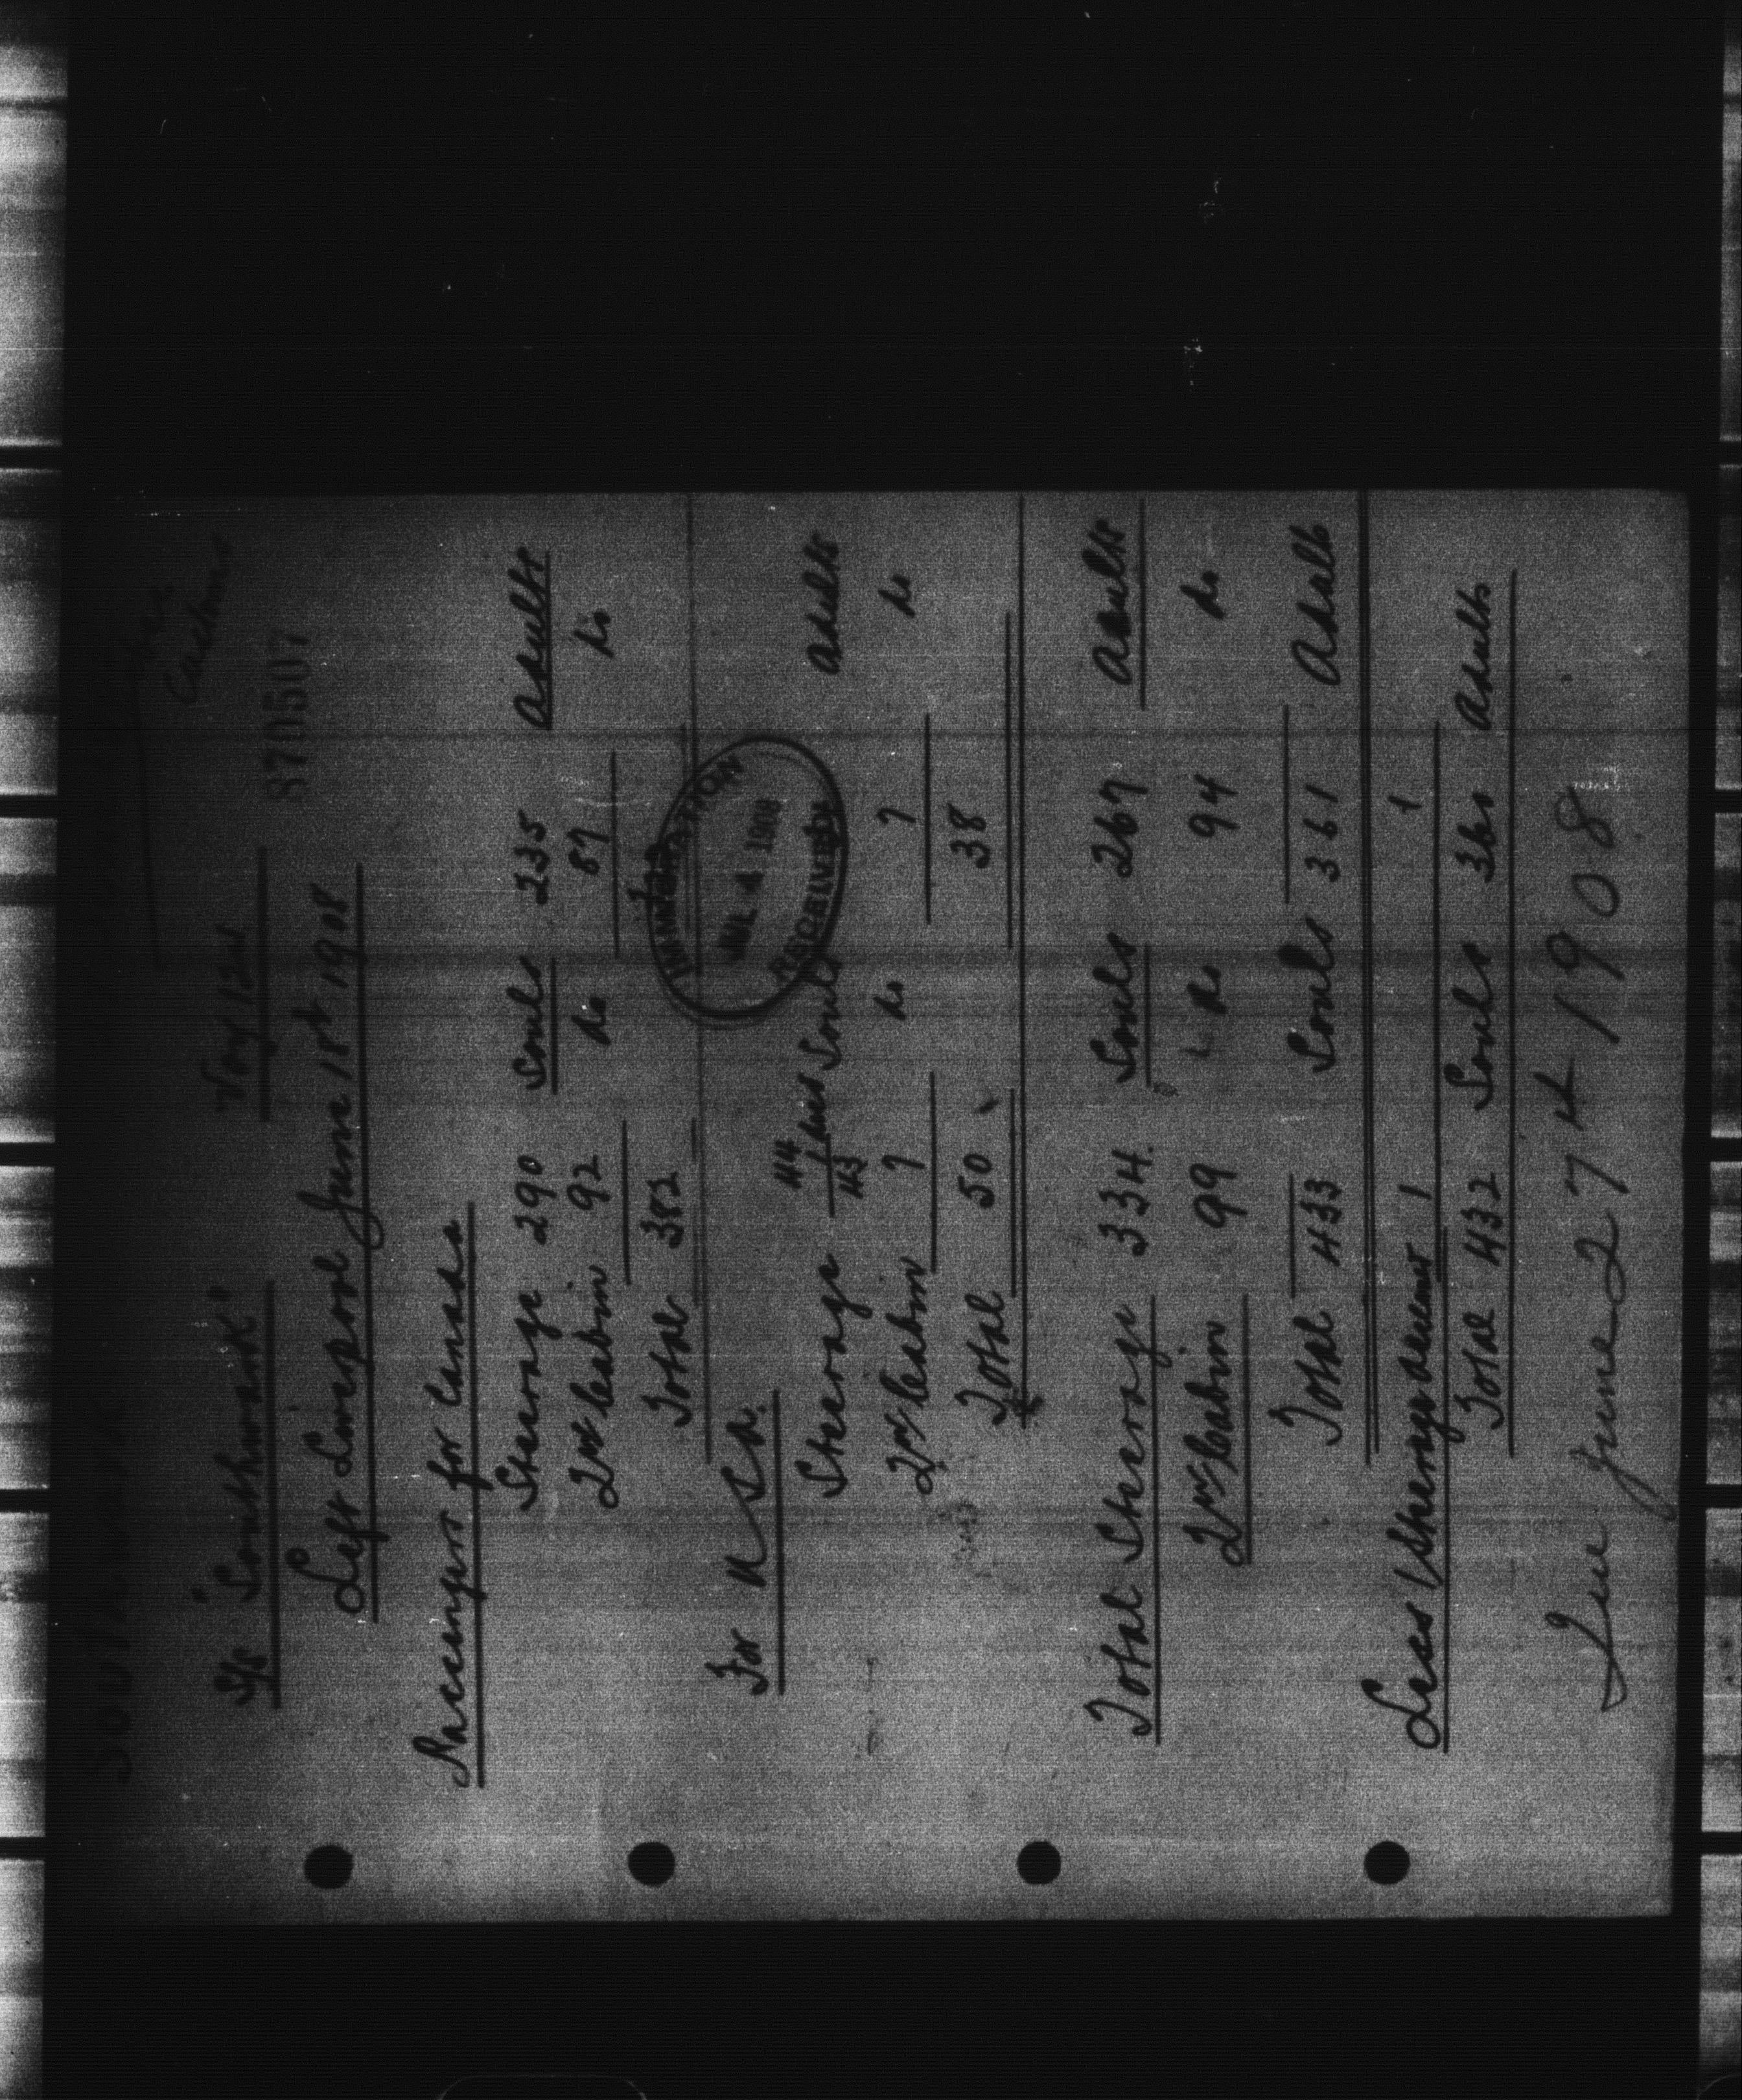 Southwark
Customs
S/s "Southwark" Voy 121
870507
Left Liverpool June 18th 1908
Passengers for Canada
Steerage 290 Souls 235 Adults
2nd Cabin 92 do 87 do
Total 382
IMMIGRATION
JUL 4 1908
RECEIVED
For U S A.
44
Steerage 43 Souls Adults
2nd Cabin 7 do 7 do
Total 50 38
Total Steerage 334 Souls 267 Adults
2nd Cabin 99 do 94 do
Total 433 Souls 361 Adults
Less 1 Steerage 1 1
Total 432 Souls 360 Adults
June 27th 1908